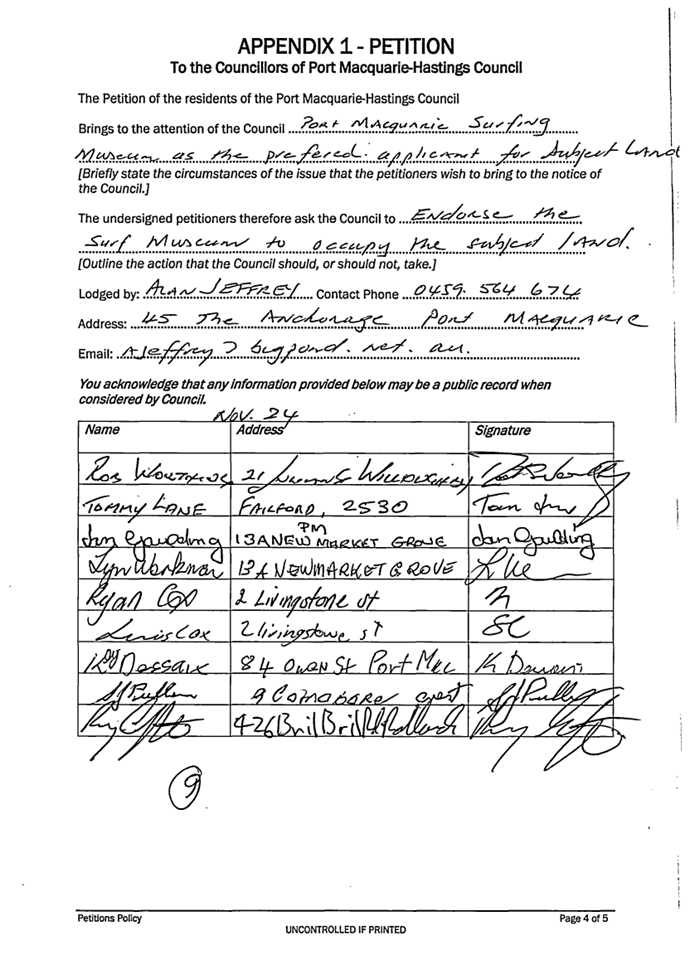 APPENDIX 1 - PETITION
To the Councillors of Port Macquarie-Hastings Council
The Petition of the residents of the Port Macquarie-Hastings Council
Brings to the attention of the Council Port Macquarie Surfing
Museum as the prefered applicant for subject land
[Briefly state the circumstances of the issue that the petitioners wish to bring to the notice of
the Council.]
The undersigned petitioners therefore ask the Council to Endorse the
Surf Museum to occupy the subject land.
[Outline the action that the Council should, or should not, take.]
Lodged by: ALAN JEFFREY Contact Phone 0459. 564 674
Address: 45 The Anchorage Port Macquarie
Email: AJeffrey bigpond. net. au.
You acknowledge that any information provided below may be a public record when
considered by Council.
Nov. 24
Name Address Signature
Rob 21
TOMMY LANE FAILFORD, 2530 Tom
PM
Jan Goulding 13A NEW MARKET GROVE Jan Goulding
Lyn Workman 13A NEWMARKET GROVE
Ryan Cox 2 Livingstone st
Cox 2 livingstone st SC
Dessaix 84 Owen St Port Mac K
9 Crest
426 Bril Bril Rd Rollands
9
Petitions Policy Page 4 of 5
UNCONTROLLED IF PRINTED